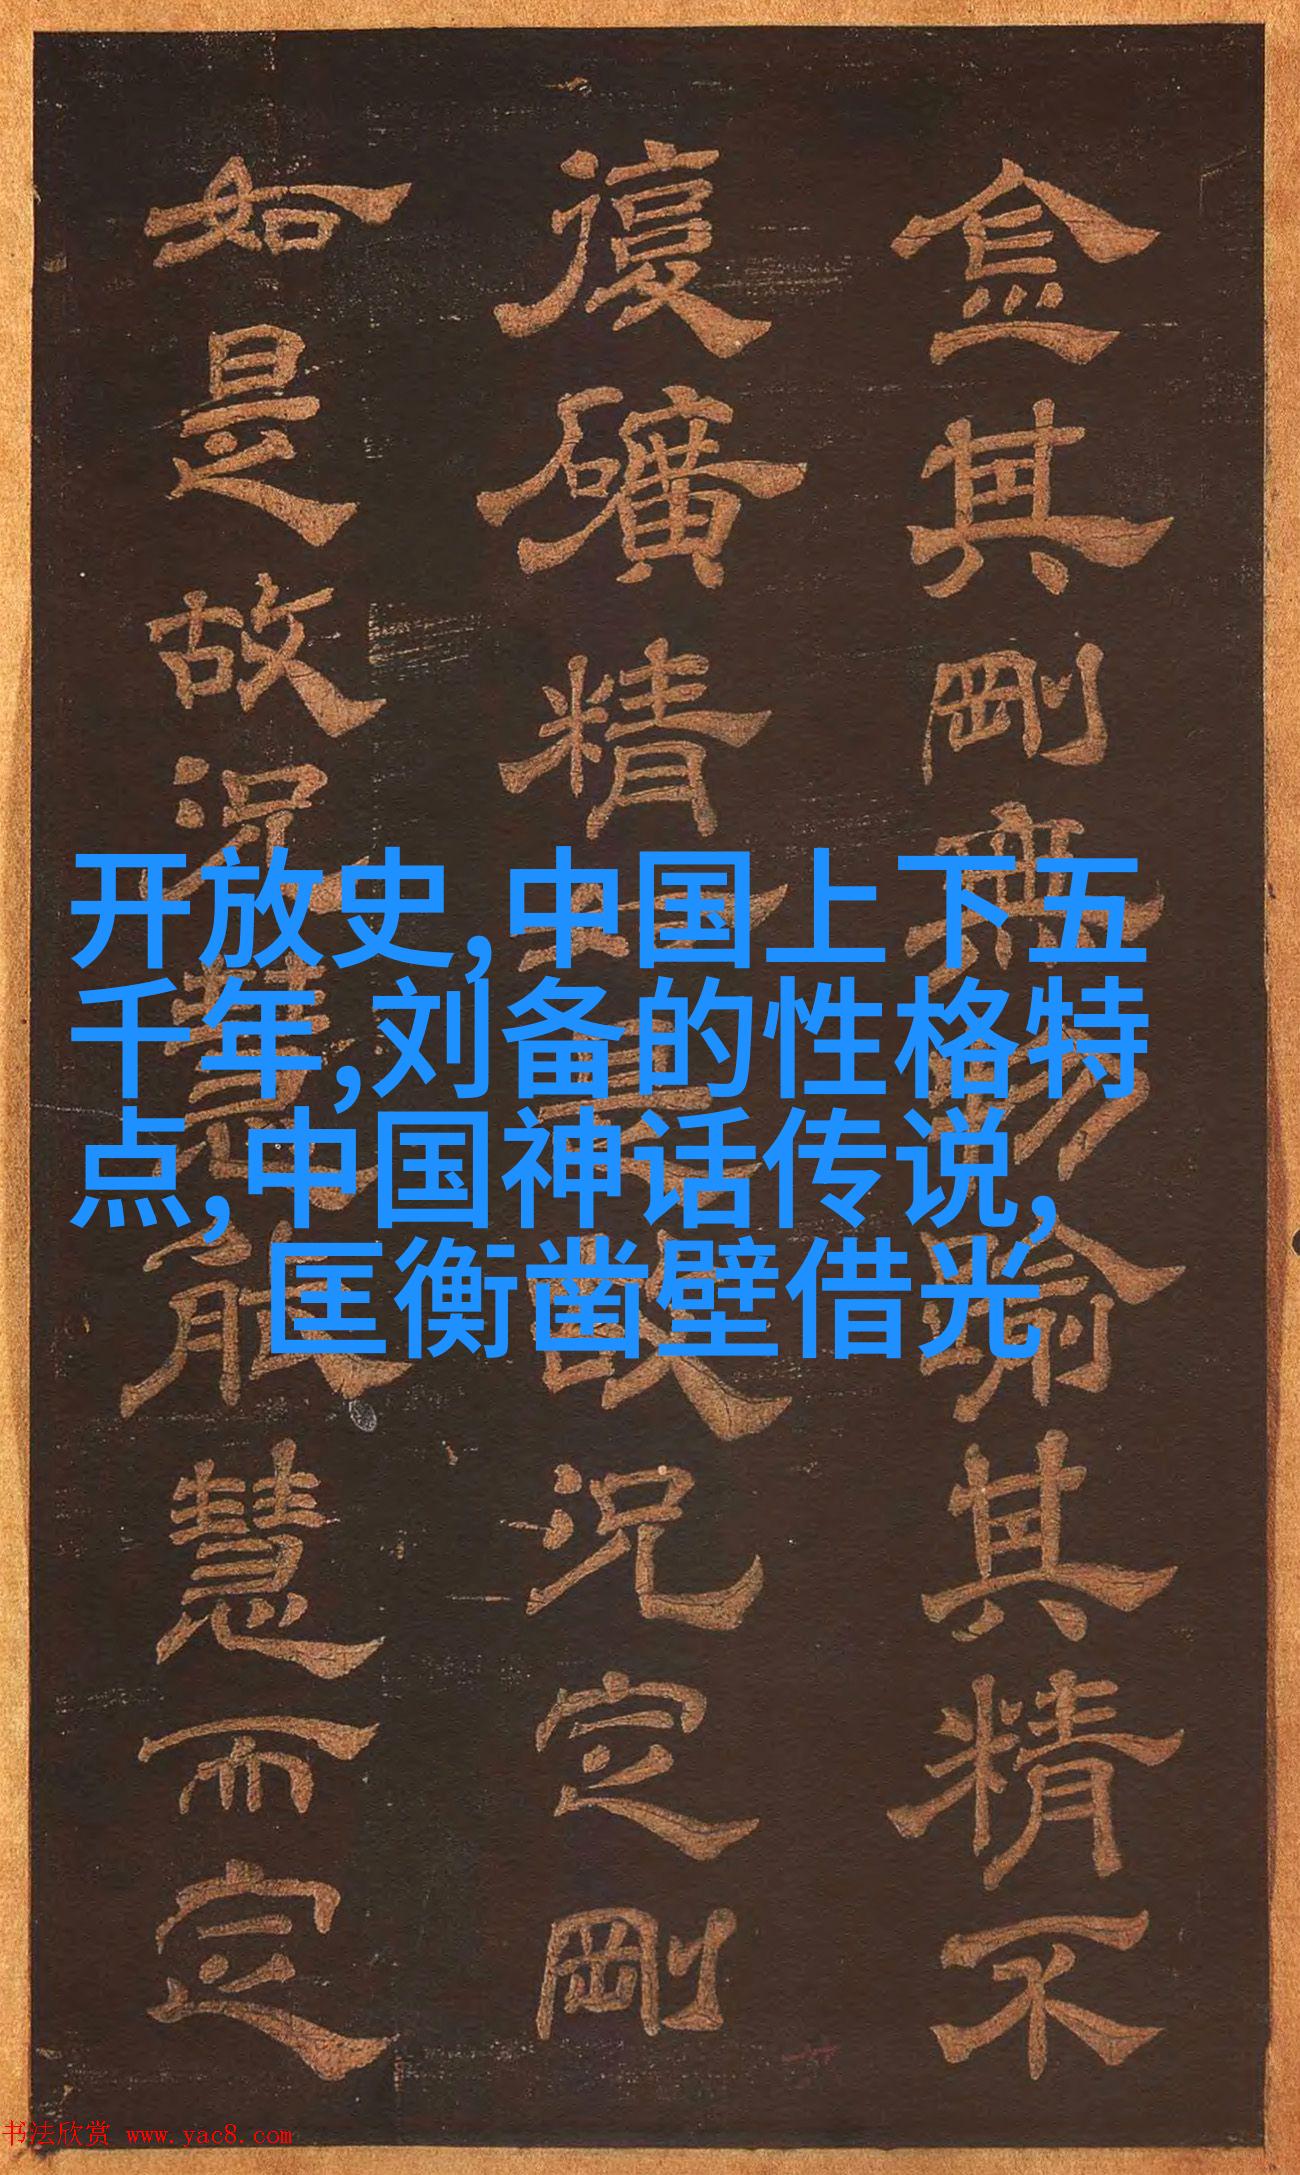 开放史,中国上下五
千年,刘备的性格特
点,中国神话传说,
匡衡凿壁借光
其剛無物喻其精不
復礦精故況定剛
如是故況慧能慧而定
书法欣赏 www.yac8.com